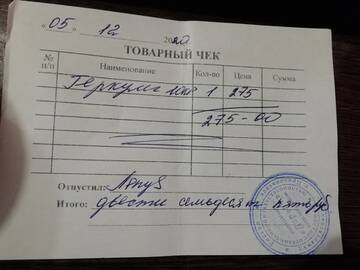 «05» 12 2020
ТОВАРНЫЙ ЧЕК
№ п/п Наименование Кол-во Цена Сумма
Геркулес 1 275
275-00
Отпустил:
Итого: двести семьдесят пять руб